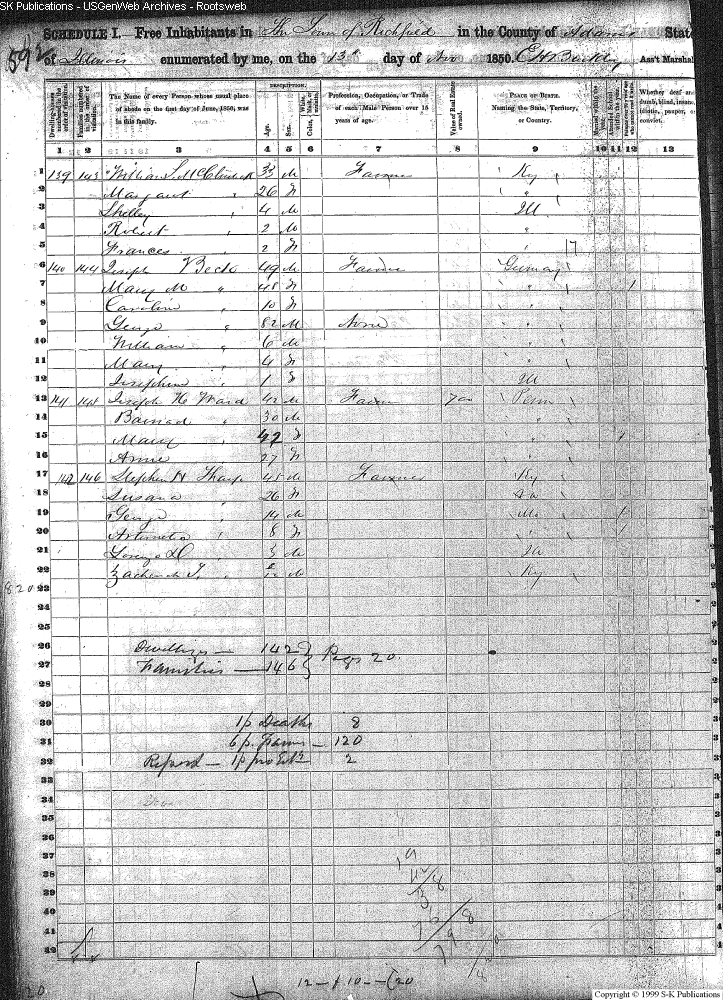 SK Publications - USGenWeb Archives - Rootsweb
SCHEDULE I. Free Inhabitants in The Town of Richfield in the County of Adams State
592 of Illinois enumerated by me, on the 13th day of Nov 1850. Ass't Marshal
DESCRIPTION.
Dwelling-houses numbered in the order of visitation. Families numbered in the order of visitation. The Name of every Person whose usual place of abode on the first day of June, 1850, was in this family. Age. Sex. Color, White, black, or mulatto. Profession, Occupation, or Trade of each Male Person over 15 years of age. Value of Real Estate owned. PLACE OF BIRTH. Naming the State, Territory, or Country. Married within the year. Attended School within the year. Whether deaf and dumb, blind, insane, idiotic, pauper, or convict.
1 2 3 4 5 6 7 8 9 10 11 12 13
1 139 143 William S. McClintock 33 M Farmer Ky
2 Margaret " 26 F "
3 Shelley " 4 M Ill
4 Robert " 2 M "
5 Frances " 2 F "
6 140 144 Joseph Beck 49 M Farmer Germany
7 Mary M " 48 F " 1
8 Caroline " 10 F "
9 George " 82 M None "
10 William " 6 M "
11 Mary " 4 F "
12 Josephine " 1 F Ill
13 141 145 Joseph H Ward 42 M Farmer 700 Penn
14 " 30 M "
15 Mary " 47 F " 1
16 Anne " 27 F "
17 142 146 Stephen H Tharp 45 M Farmer Ky
18 Susana " 26 F
19 George " 14 M Mo 1
20 " 8 F " 1
21 Lorenzo D " 3 M Ill
22 Zachariah T. " M Ky
820 23
24
25
26 Dwellings — 142 } Page 20
27 Families — 146
28
29
30 1 p Deaths 8
31 6 p. Farms — 120
32 1 p 2
33
34
35
36
37
38
39
40
41
42
12 — 10 — 20
20
Copyright © 1999 S-K Publications